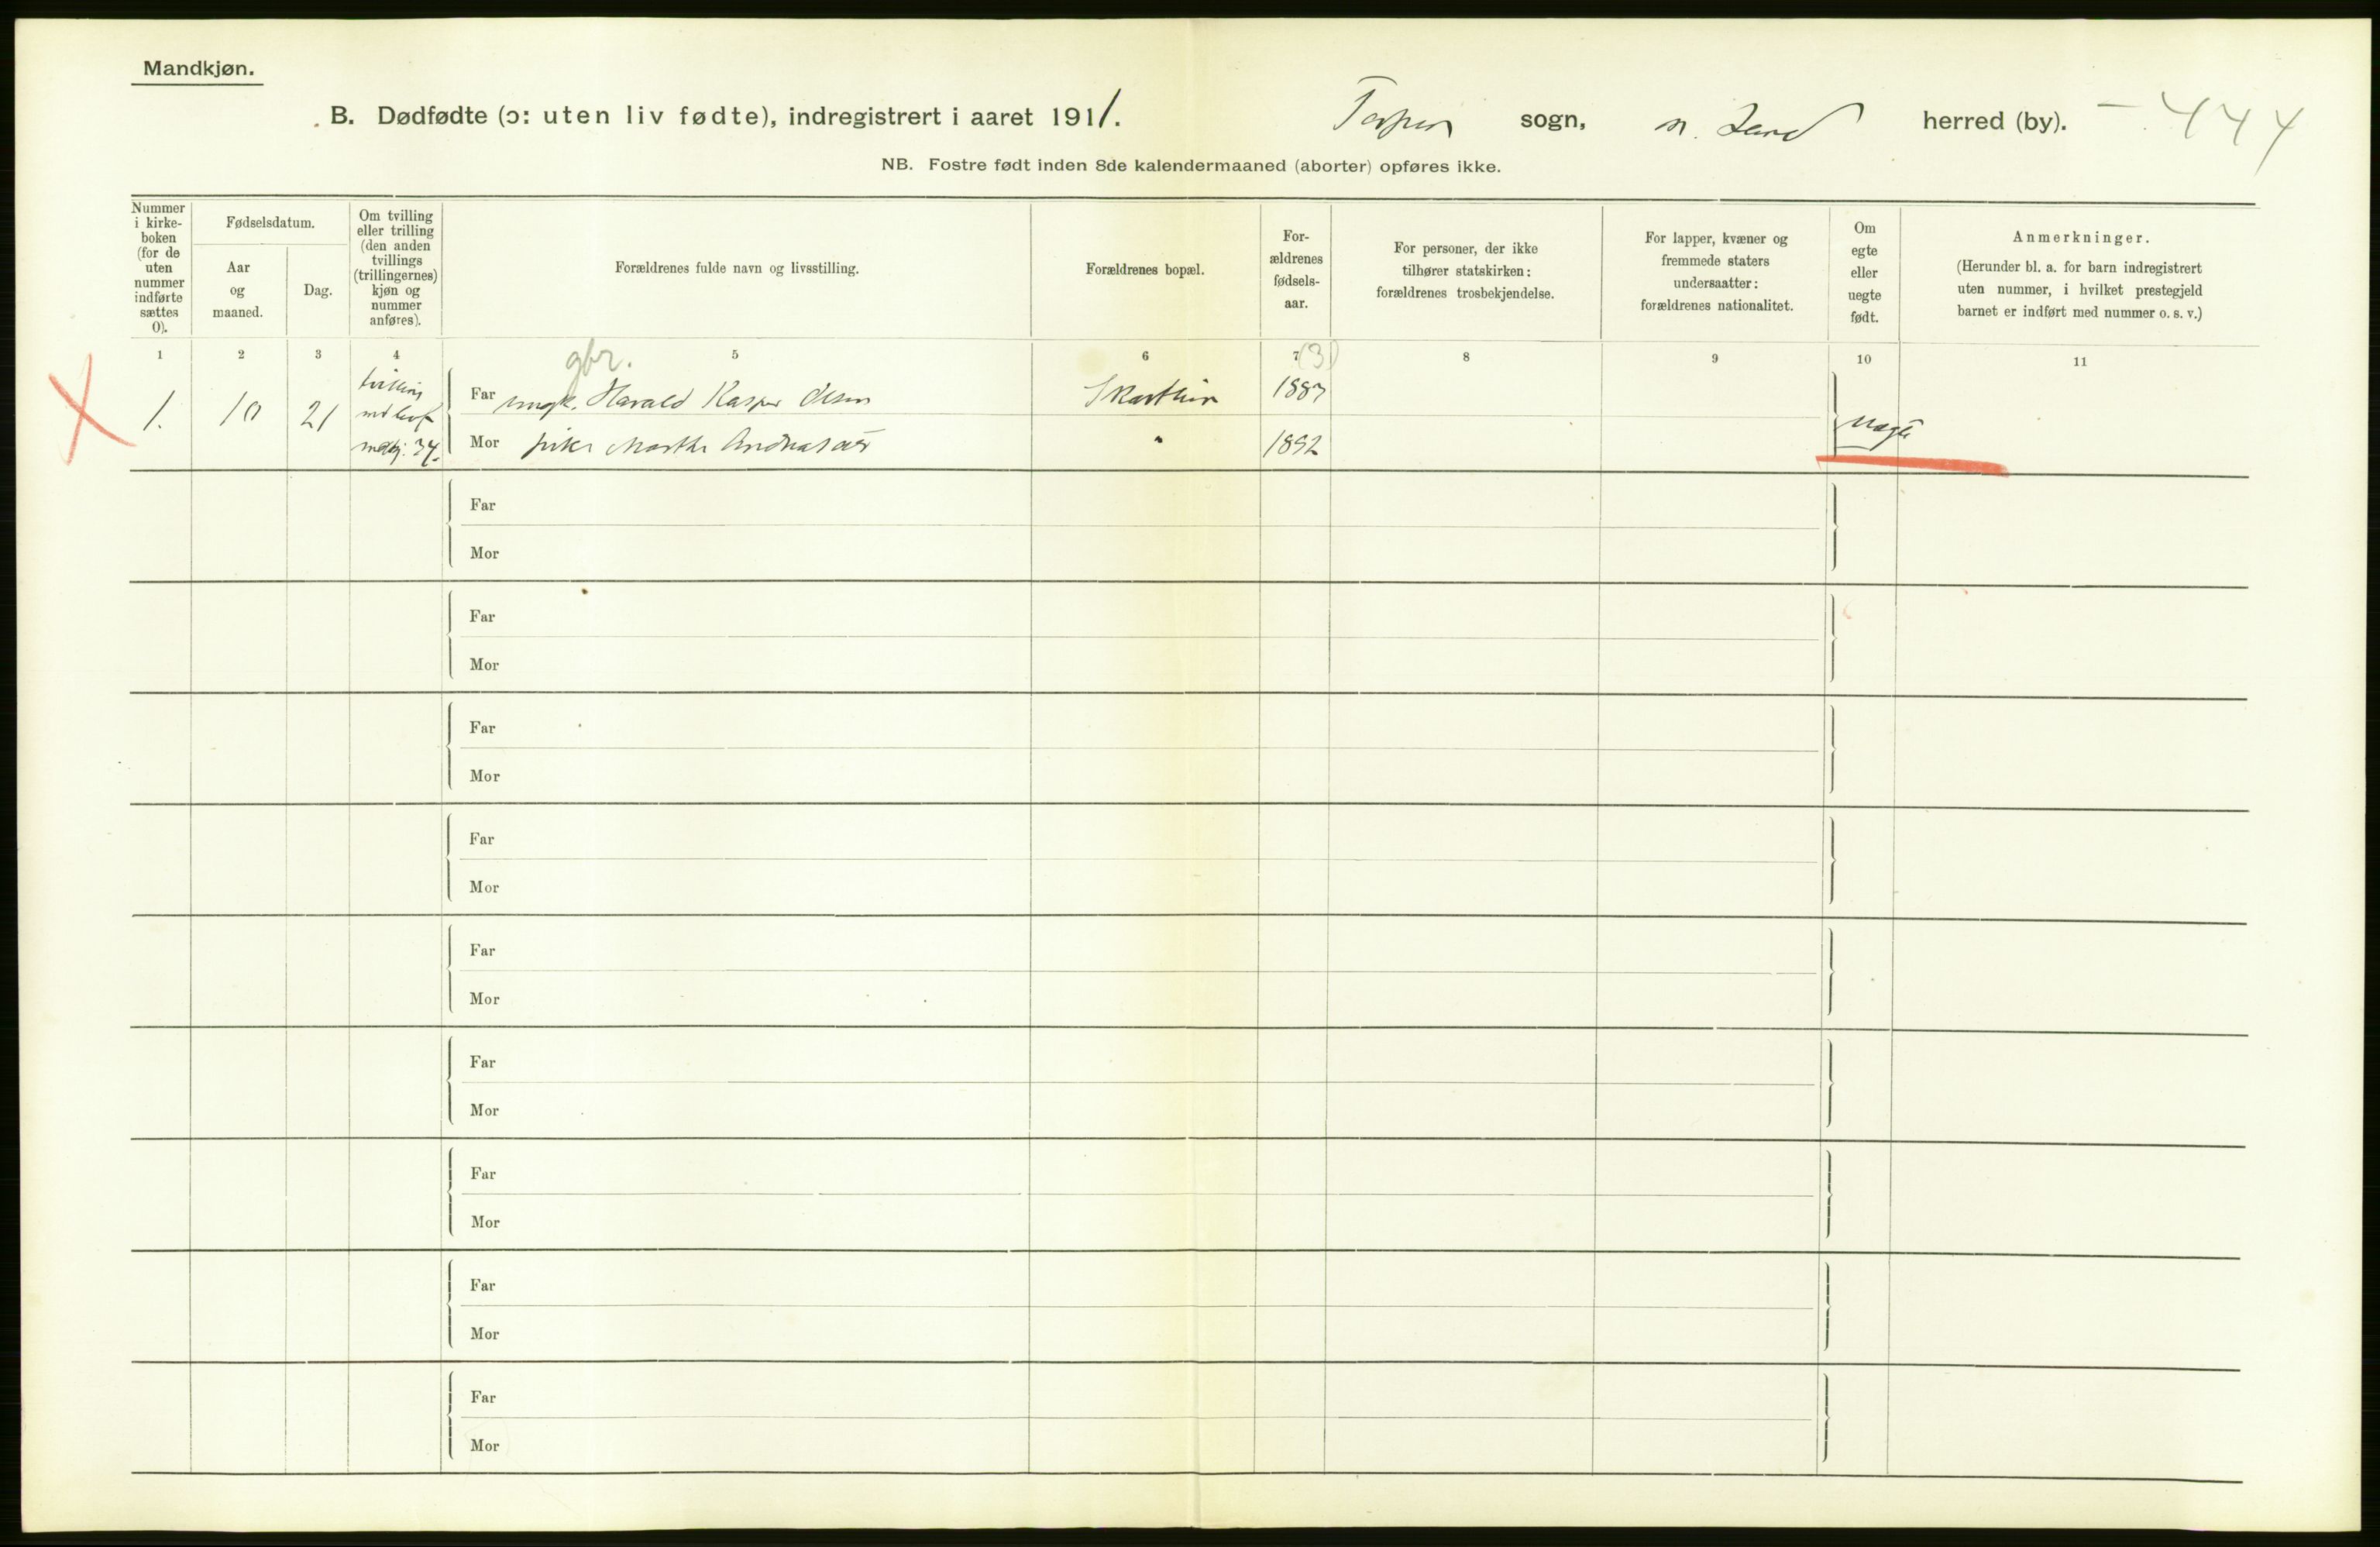 Mandkjøn.
B. Dødfødte (ɔ: uten liv fødte), indregistrert i aaret 1911. Torpen sogn, n. Land herred (by). – 444
NB. Fostre født inden 8de kalendermaaned (aborter) opføres ikke.
Nummer
i kirke-
boken
(for de
uten
nummer
indførte
sættes
0).
Fødselsdatum.
Aar
og
maaned.
Dag.
Om tvilling
eller trilling
(den anden
tvillings
(trillingernes)
kjøn og
nummer
anføres).
Forældrenes fulde navn og livsstilling.
Forældrenes bopæl.
For-
ældrenes
fødsels-
aar.
For personer, der ikke
tilhører statskirken:
forældrenes trosbekjendelse.
For lapper, kvæner og
fremmede staters
undersaatter:
forældrenes nationalitet.
Om
egte
eller
uegte
født.
Anmerkninger.
(Herunder bl. a. for barn indregistrert
uten nummer, i hvilket prestegjeld
barnet er indført med nummer o. s. v.)
1 2 3 4 5 6 7 8 9 10 11
gbr. (3)
1. 10 21
tvilling
34.
Far ungk. Harald Kasper Olsen 1887
Mor pike Marthe Andreasdr " 1892
uegte
Far
Mor
Far
Mor
Far
Mor
Far
Mor
Far
Mor
Far
Mor
Far
Mor
Far
Mor
Far
Mor